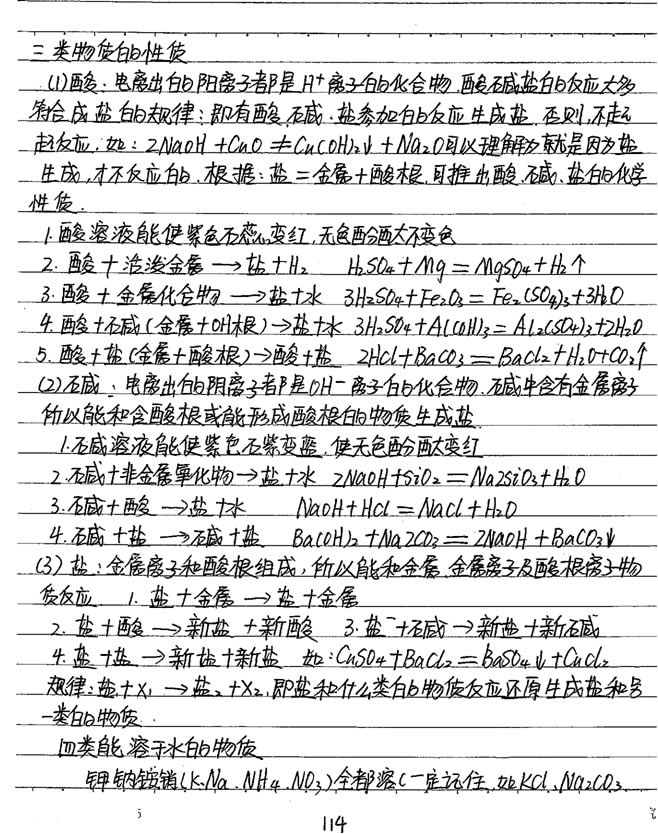 三类物质的性质
(1)酸:电离出的阳离子都是H⁺离子的化合物.酸碱盐的反应大多
符合成盐的规律:即有酸.碱.盐参加的反应生成盐,否则,不起
起反应.如:2NaOH+CuO≠Cu(OH)₂↓+Na₂O可以理解为就是因为盐
生成,才不反应的.根据:盐=金属+酸根,可推出酸.碱.盐的化学
性质.
1.酸溶液能使紫色石蕊变红,无色酚酞不变色
2.酸+活泼金属→盐+H₂ H₂SO₄+Mg=MgSO₄+H₂↑
3.酸+金属化合物→盐+水 3H₂SO₄+Fe₂O₃=Fe₂(SO₄)₃+3H₂O
4.酸+碱(金属+OH根)→盐+水 3H₂SO₄+Al(OH)₃=Al₂(SO₄)₃+2H₂O
5.酸+盐(金属+酸根)→酸+盐 2HCl+BaCO₃=BaCl₂+H₂O+CO₂↑
(2)碱:电离出的阴离子都是OH⁻离子的化合物.碱中含有金属离子
所以能和含酸根或能形成酸根的物质生成盐
1.碱溶液能使紫色石蕊变蓝,使无色酚酞变红
2.碱+非金属氧化物→盐+水 2NaOH+SiO₂=Na₂SiO₃+H₂O
3.碱+酸→盐+水 NaOH+HCl=NaCl+H₂O
4.碱+盐→碱+盐 Ba(OH)₂+Na₂CO₃=2NaOH+BaCO₃↓
(3)盐:金属离子和酸根组成,所以能和金属.金属离子及酸根离子物
质反应 1.盐+金属→盐+金属
2.盐+酸→新盐+新酸 3.盐+碱→新盐+新碱
4.盐+盐→新盐+新盐 如:CuSO₄+BaCl₂=BaSO₄↓+CuCl₂
规律:盐₁+X₁→盐₂+X₂,即盐和什么类的物质反应还原生成盐和另
一类的物质.
四类能溶于水的物质
钾钠铵硝(K.Na.NH₄.NO₃)全都溶(一定记住,如KCl.Na₂CO₃
114